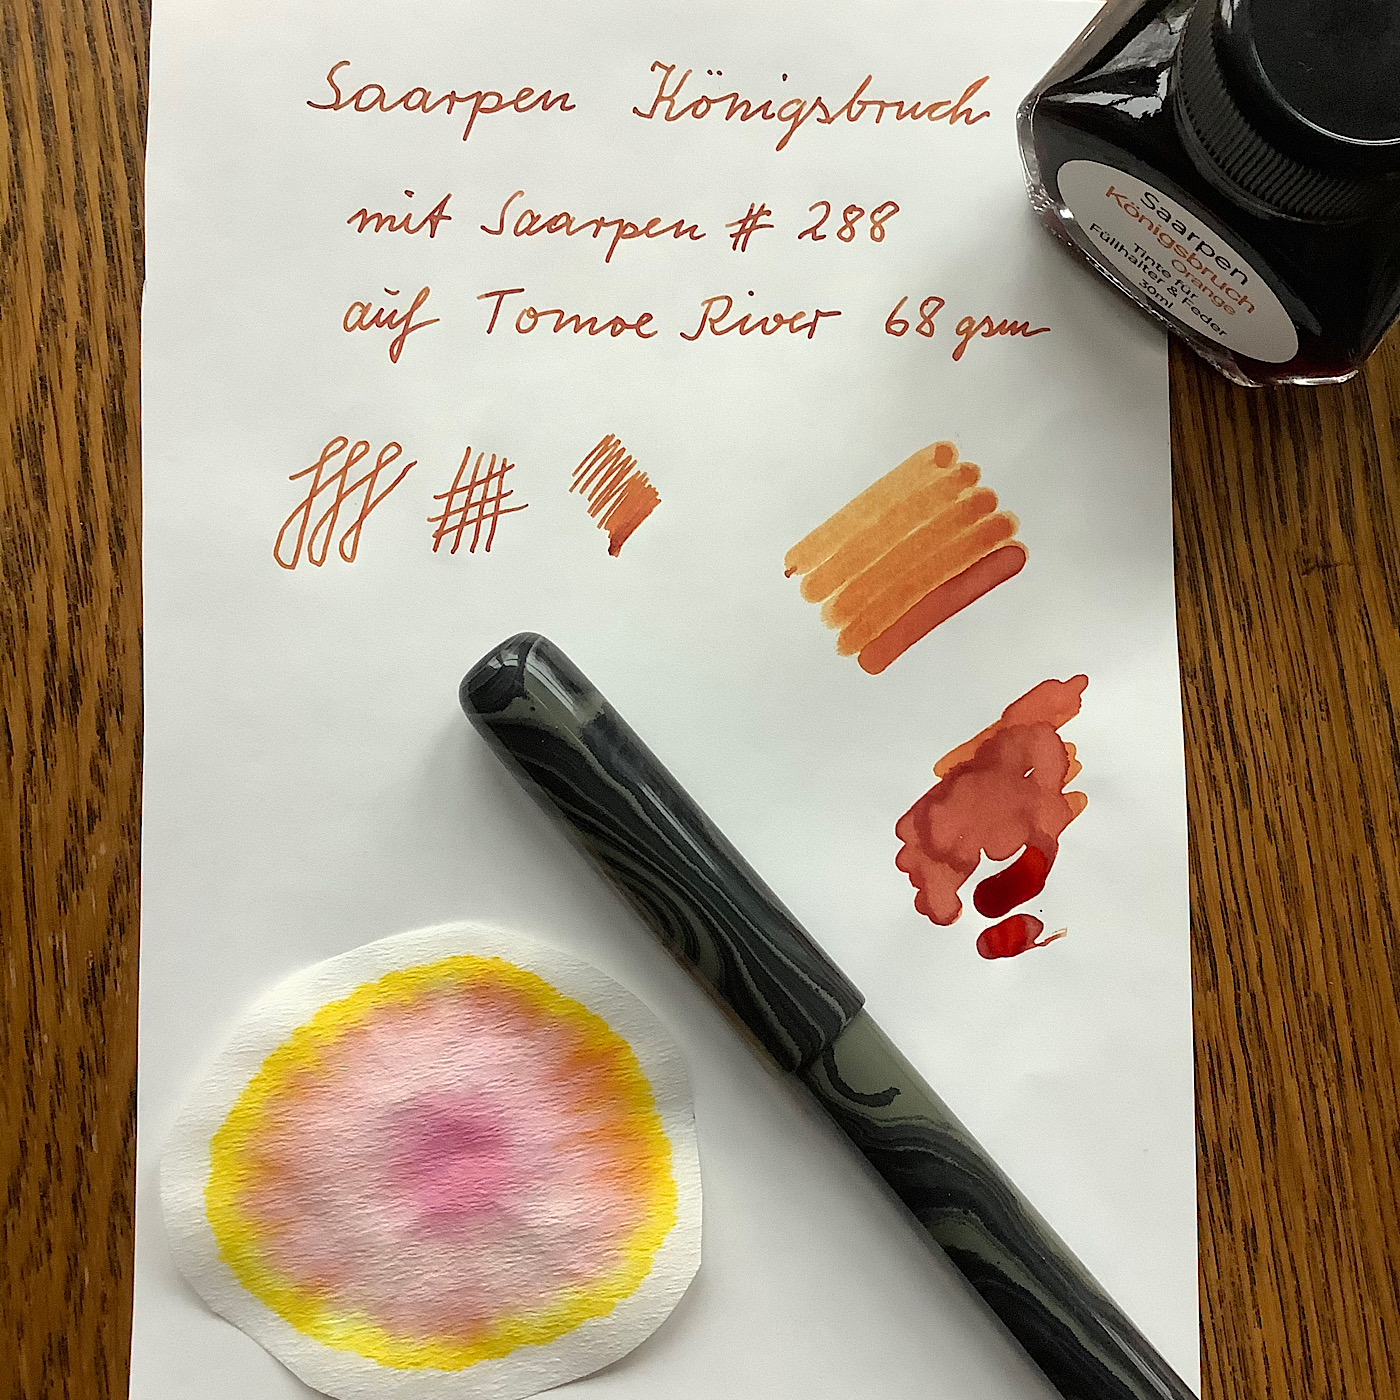 Saarpen Königsbruch
mit Saarpen # 288
auf Tomoe River 68 gsm
Saarpen
Königsbruch
Orange
Tinte für
Füllhalter & Feder
30ml